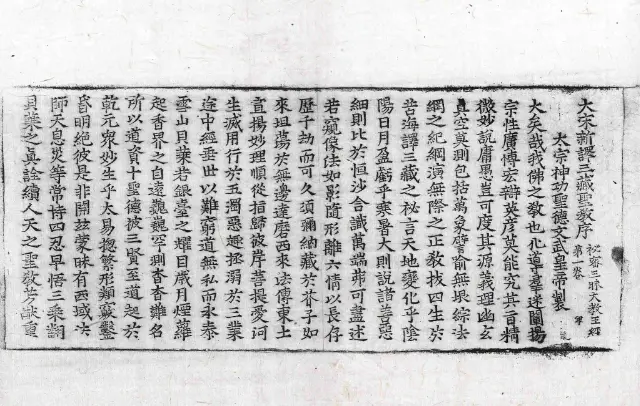 大宋新譯三藏聖教序
秘密三昧大教王經
第一卷
太宗神功聖德文武皇帝製
大矣哉我佛之教也化導群迷闡揚
宗性廣博宏辯英彥莫能究其旨精
微妙說庸愚豈可度其源義理幽玄
真空莫測包括萬象譬喻無垠綜法
網之紀綱演無際之正教拔四生於
苦海譯三藏之祕言天地變化乎陰
陽日月盈虧乎寒暑大則說諸善惡
細則比於恒沙含識萬端弗可盡述
若窺像法如影隨形離六情以長存
歷千劫而可久須彌納藏於芥子如
來坦蕩於無邊達磨西來法傳東土
宣揚妙理順從指歸彼岸菩提愛河
生滅用行於五濁惡趣拯溺於三業
途中經垂世以難窮道無私而永泰
雪山貝葉若銀臺之耀目歲月煙蘿
起香界之自遠巍巍罕測杳杳難名
所以道資十聖德被三賢至道起於
乾元眾妙生乎太易揔繁形類竅鑿
昏明絕彼是非開茲蒙昧有西域法
師天息災等常持四忍早悟三乘翻
貝葉之真詮續人天之聖教芳猷重